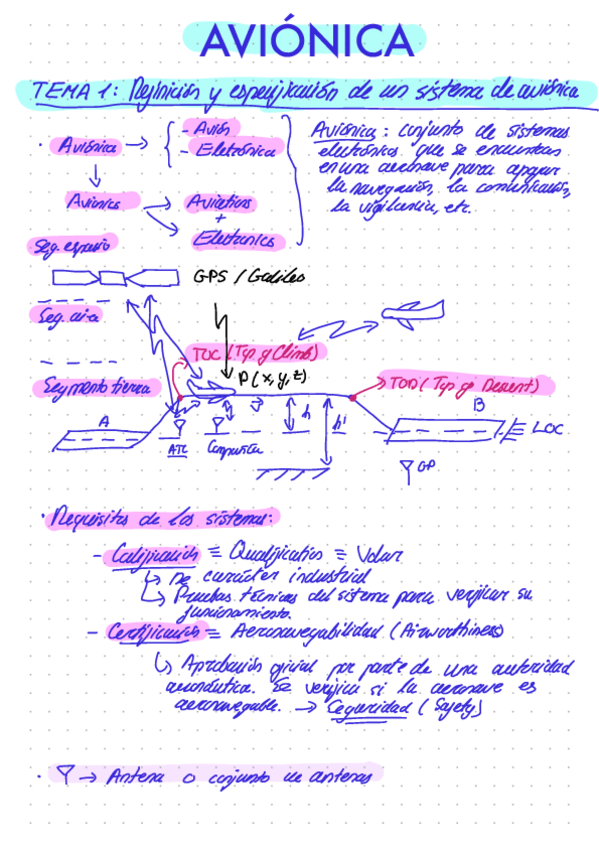 AVIÓNICA
TEMA 1: Definición y especificación de un sistema de aviónica
· Aviónica → - Avión
- Eletrónica
Avionics → Aviation
+
Electronics
Aviónica: conjunto de sistemas
electrónicos que se encuentran
en una aeronave para apoyar
la navegación, la comunicación,
la vigilancia, etc.
Seg. espacio
GPS / Galileo
Seg. aire
TOC (Top of Climb)
P(x, y, z)
Segmento tierra
TOD (Top of Descent)
A
B
h
h'
LOC
ATC
Compañía
GP
· Requisitos de los sistemas:
- Calificación ≡ Qualification ≡ Volar
↳ De carácter industrial
↳ Pruebas técnicas del sistema para verificar su
funcionamiento.
- Certificación ≡ Aeronavegabilidad (Airworthiness)
↳ Aprobación oficial por parte de una autoridad
aeronáutica. Se verifica si la aeronave es
aeronavegable. → Seguridad (Safety)
· → Antena o conjunto de antenas